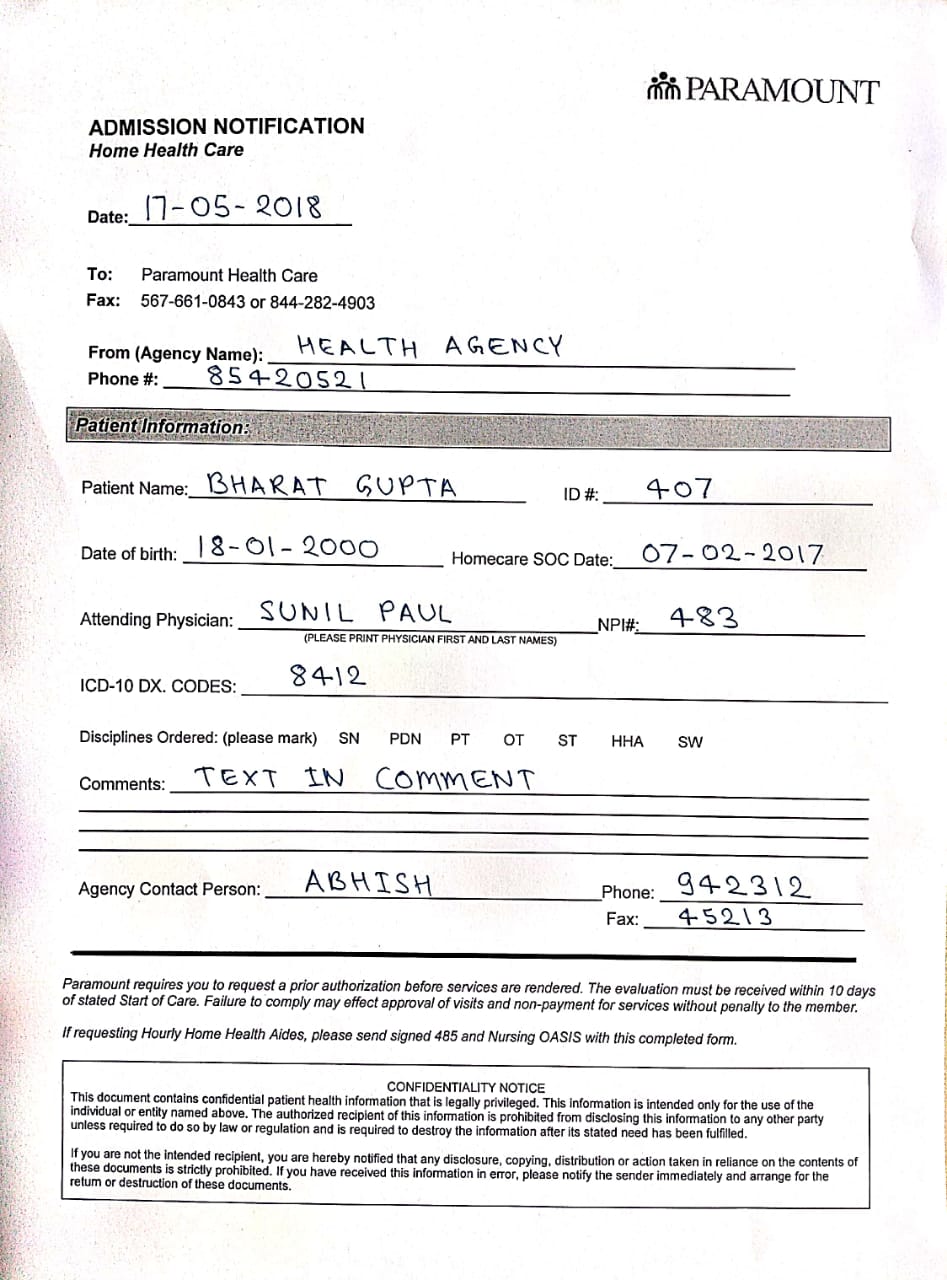 PARAMOUNT
ADMISSION NOTIFICATION
Home Health Care
Date: 17-05-2018
To: Paramount Health Care
Fax: 567-661-0843 or 844-282-4903
From (Agency Name): HEALTH AGENCY
Phone #: 85420521
Patient Information:
Patient Name: BHARAT GUPTA ID #: 407
Date of birth: 18-01-2000 Homecare SOC Date: 07-02-2017
Attending Physician: SUNIL PAUL NPI#: 483
(PLEASE PRINT PHYSICIAN FIRST AND LAST NAMES)
ICD-10 DX. CODES: 8412
Disciplines Ordered: (please mark) SN PDN PT OT ST HHA SW
Comments: TEXT IN COMMENT
Agency Contact Person: ABHISH Phone: 942312
Fax: 45213
Paramount requires you to request a prior authorization before services are rendered. The evaluation must be received within 10 days
of stated Start of Care. Failure to comply may effect approval of visits and non-payment for services without penalty to the member.
If requesting Hourly Home Health Aides, please send signed 485 and Nursing OASIS with this completed form.
CONFIDENTIALITY NOTICE
This document contains confidential patient health information that is legally privileged. This information is intended only for the use of the
individual or entity named above. The authorized recipient of this information is prohibited from disclosing this information to any other party
unless required to do so by law or regulation and is required to destroy the information after its stated need has been fulfilled.
If you are not the intended recipient, you are hereby notified that any disclosure, copying, distribution or action taken in reliance on the contents of
these documents is strictly prohibited. If you have received this information in error, please notify the sender immediately and arrange for the
return or destruction of these documents.